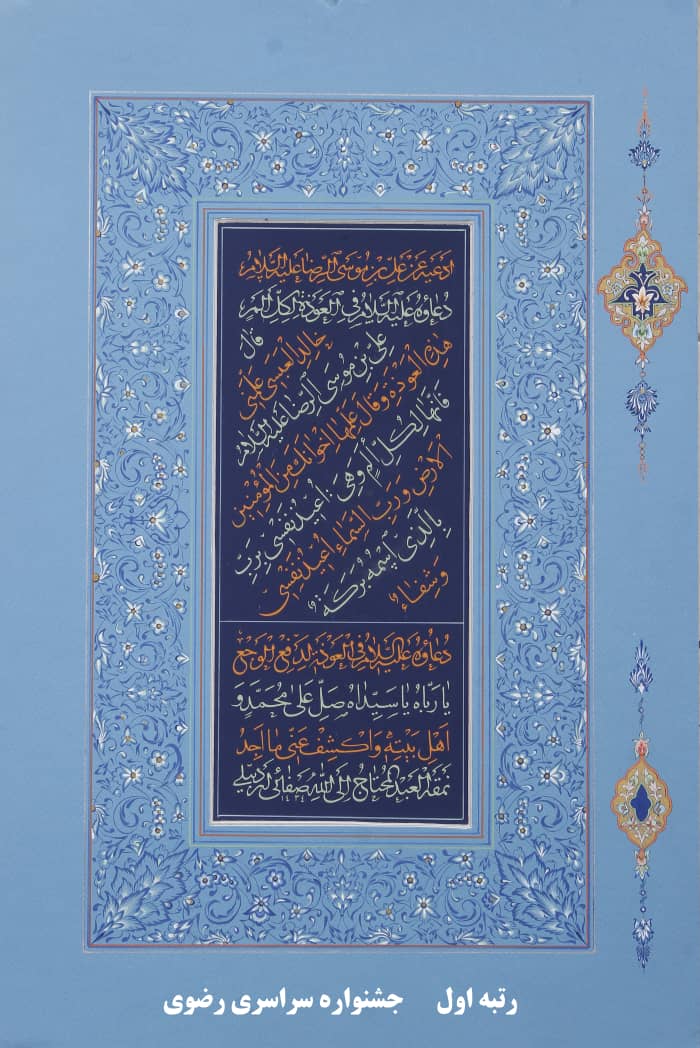 ادعیة عن علی بن موسَی الرضا علیه السلام
دعاؤه علیه السلام فی العوذة لکل الم
قال
خالد العبسی علمنی
علی بن موسی الرضا علیه السلام
هذه العوذة وقال علمها اخوانک من المؤمنین
فانها لکل الم وهی: اعیذ نفسی برب
الارض و رب السماء اعیذ نفسی
بالذی اسمه برکة
و شفاء
دعاؤه علیه السلام فی العوذة لدفع الوجع
یا رباه یا سیداه صل علی محمد و
اهل بیته واکشف عنی ما اجد
نمقه العبد المحتاج الی الله صفائی اردبیلی
رتبه اول جشنواره سراسری رضوی